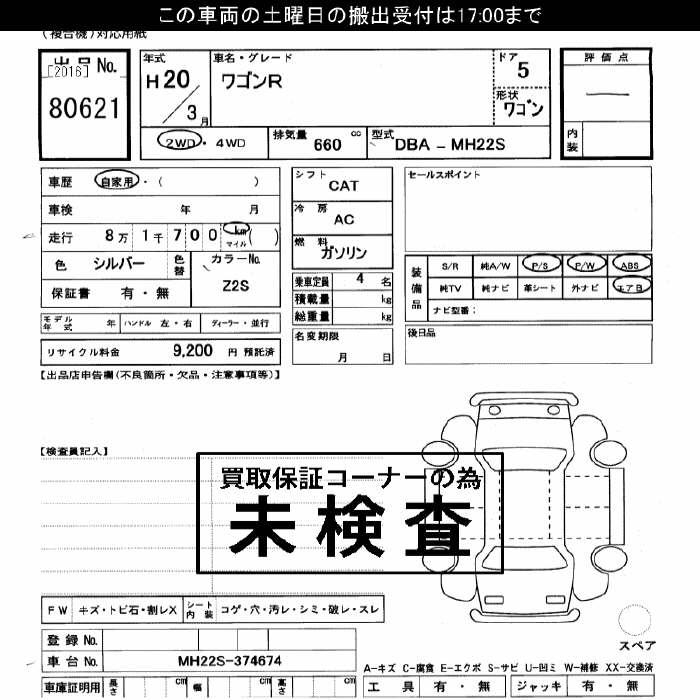 この車両の土曜日の搬出受付は17:00まで
(複合機)対応用紙
出品 No.
[2016]
80621
年式
H 20
/ 3 月
車名・グレード
ワゴンR
ドア
5
形状
ワゴン
評価点
内装
2WD・4WD
排気量 660 cc
型式 DBA - MH22S
車歴 自家用・( )
車検 年 月
走行 8万 1千 7 0 0 km マイル ( )
色 シルバー 色替
カラーNo.
Z2S
保証書 有・無
モデル年式 年 ハンドル 左・右 ディーラー・並行
リサイクル料金 9,200 円 預託済
シフト
CAT
冷房
AC
燃料
ガソリン
乗車定員 4 名
積載量 kg
総重量 kg
名変期限
月 日
セールスポイント
装備品
S/R 純A/W P/S P/W ABS
純TV 純ナビ 革シート 外ナビ エアB
ナビ型番:
後日品
【出品店申告欄(不良箇所・欠品・注意事項等)】
【検査員記入】
買取保証コーナーの為
未検査
FW キズ・トビ石・割レX シート内装 コゲ・穴・汚レ・シミ・破レ・スレ
登録 No.
車台 No. MH22S-374674
車庫証明用 長さ cm 幅 cm 高さ cm
スペア
A-キズ C-腐食 E-エクボ S-サビ U-凹ミ W-補修 XX-交換済
工具 有・無 ジャッキ 有・無